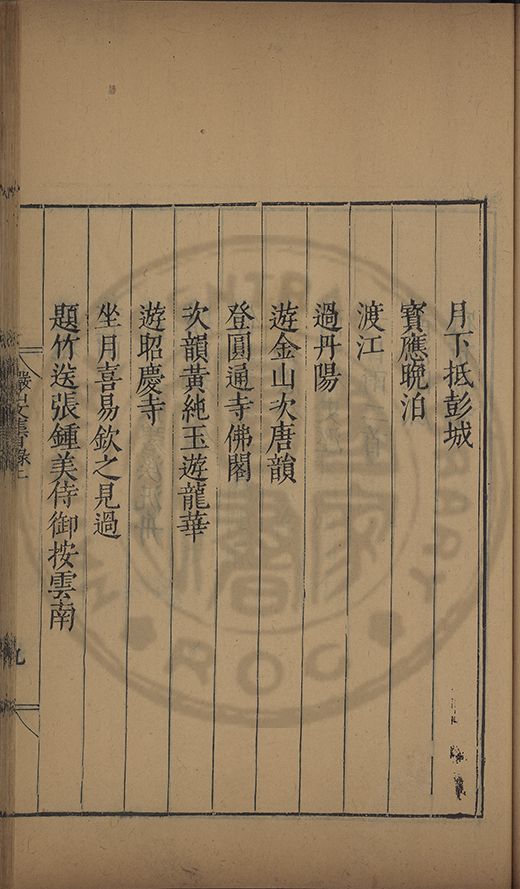 月下抵彭城
寶應晚泊
渡江
過丹陽
遊金山次唐韻
登圓通寺佛閣
次韻黃純玉遊龍華
遊昭慶寺
坐月喜易欽之見過
題竹送張鍾美侍御按雲南
九